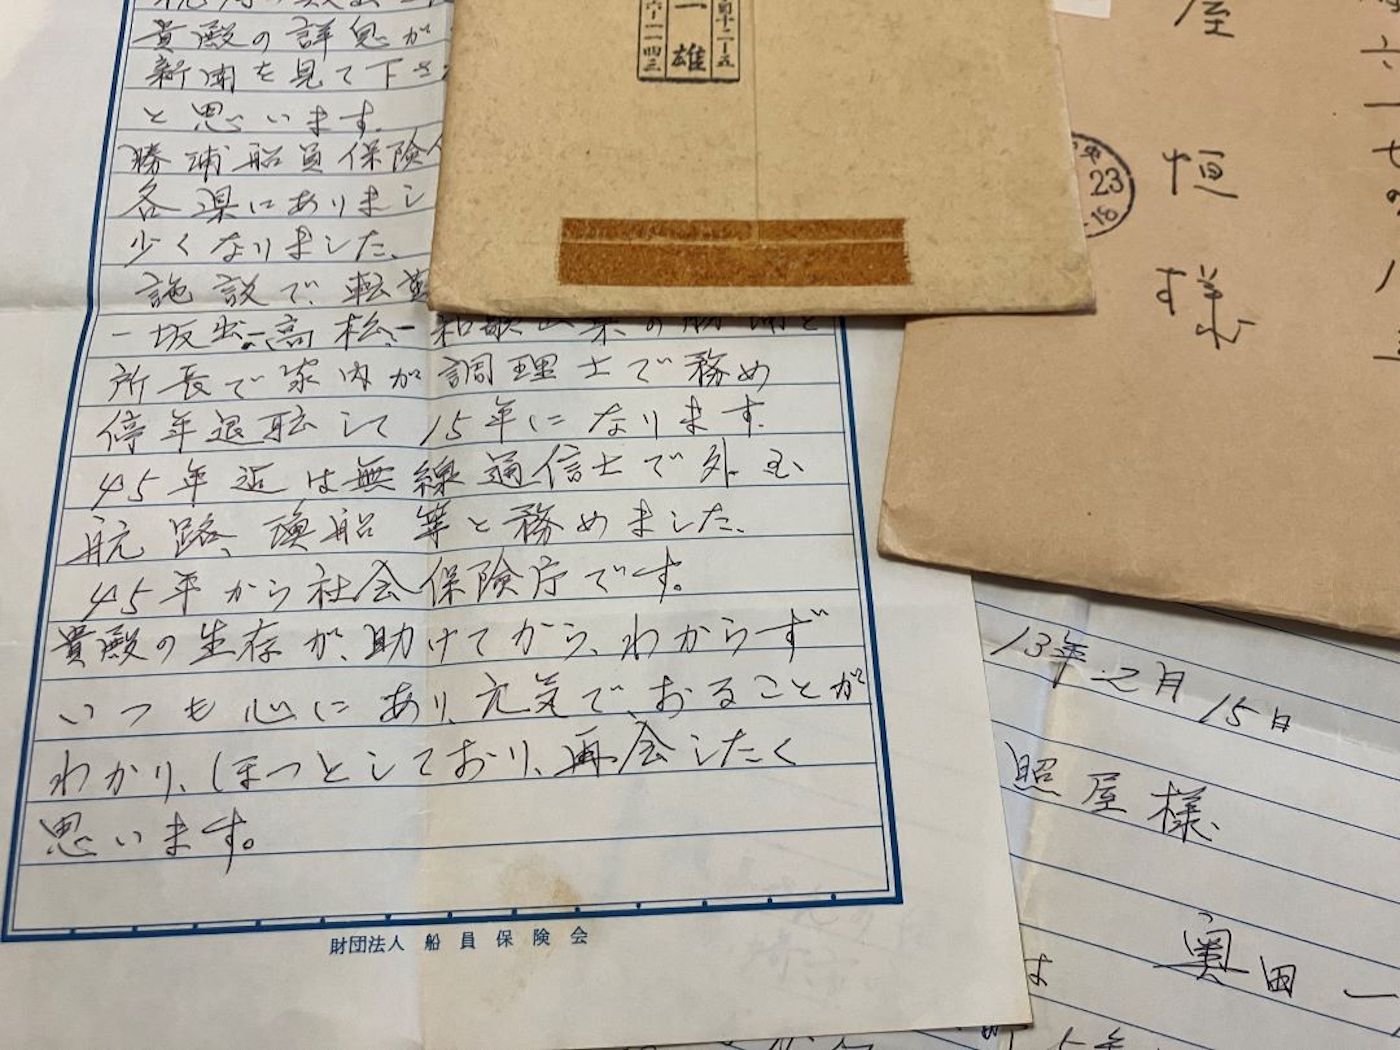 貴殿の詳息が
新聞を見て下さ
と思います。
勝浦船員保険
各県にありまし
少くなりました、
施設で、転
一坂出、高松、和歌山
所長で家内が調理士で務め
停年退転して15年になります。
45年迄は無線通信士で外国
航路、漁船等と務めました、
45年から社会保険庁です。
貴殿の生存が、助けてから、わからず
いつも心にあり、元気で、おることが
わかり、ほっとしており、再会したく
思います。
財団法人 船員保険会
一雄
屋
恒
様
23
13年2月15日
照屋様
奥田一